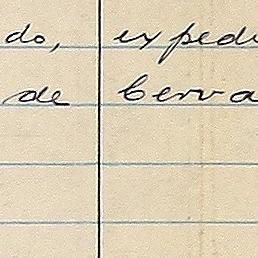 do, exped
de Cerva